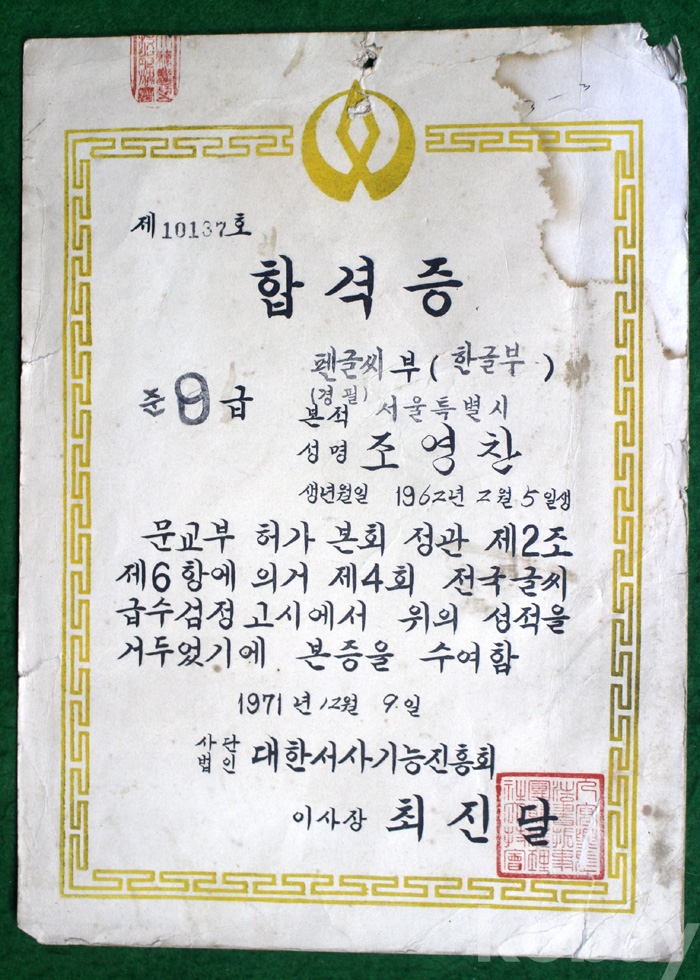 제10137호
합격증
펜글씨부(한글부)
(경필)
준9급
본적 서울특별시
성명 조영찬
생년월일 1962년 2월 5일생
문교부 허가 본회 정관 제2조
제6항에 의거 제4회 전국글씨
급수검정고시에서 위의 성적을
거두었기에 본증을 수여함
1971년 12월 9일
사단법인 대한서사기능진흥회
이사장 최진달